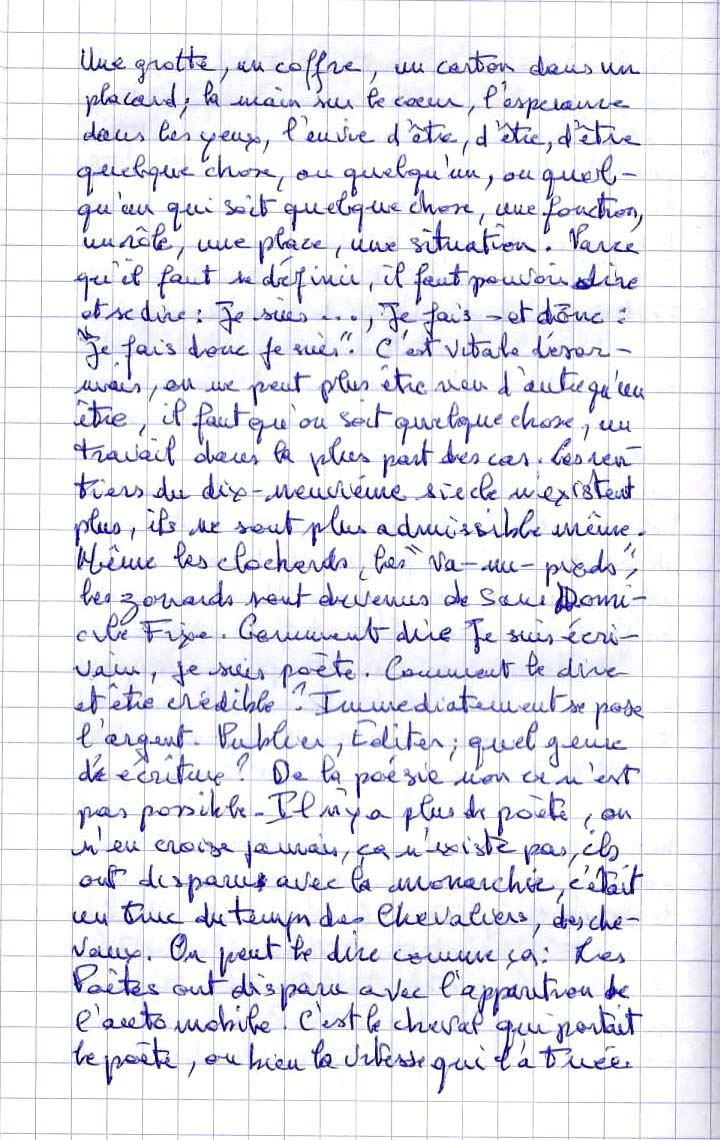 Une grotte, un coffre, un carton dans un
placard; la main sur le cœur, l'esperance
dans les yeux, l'envie d'être, d'être, d'être
quelque chose, ou quelqu'un, ou quel-
qu'un qui soit quelque chose, une fonction,
un rôle, une place, une situation. Parce
qu'il faut se définir, il faut pouvoir dire
et se dire : Je suis ..., Je fais - et donc :
"Je fais donc je suis". C'est vitale désor-
mais, on ne peut plus être rien d'autre qu'un
être, il faut qu'on soit quelque chose, un
travail dans la plus part des cas. Les ren
tiers du dix-neuvième siecle n'existent
plus, ils ne sont plus admissible même.
Même les clochards, les "Va-nu-pieds",
les zonards sont devenus de Sans Domi-
cile Fixe. Comment dire Je suis écri-
vain, je suis poète. Comment le dire
et être crédible ? Immediatement se pose
l'argent. Publier, Editer; quel genre
d'écriture ? De la poésie non ce n'est
pas possible. Il n'y a plus de poète, on
n'en croise jamais, ça n'existe pas, ils
ont disparus avec la monarchie, c'était
un truc du temps des Chevaliers, des che-
vaux. On peut le dire comme ça : Les
Poètes ont disparu avec l'apparition de
l'automobile. C'est le cheval qui portait
le poète, ou bien la vitesse qui l'a tuée.